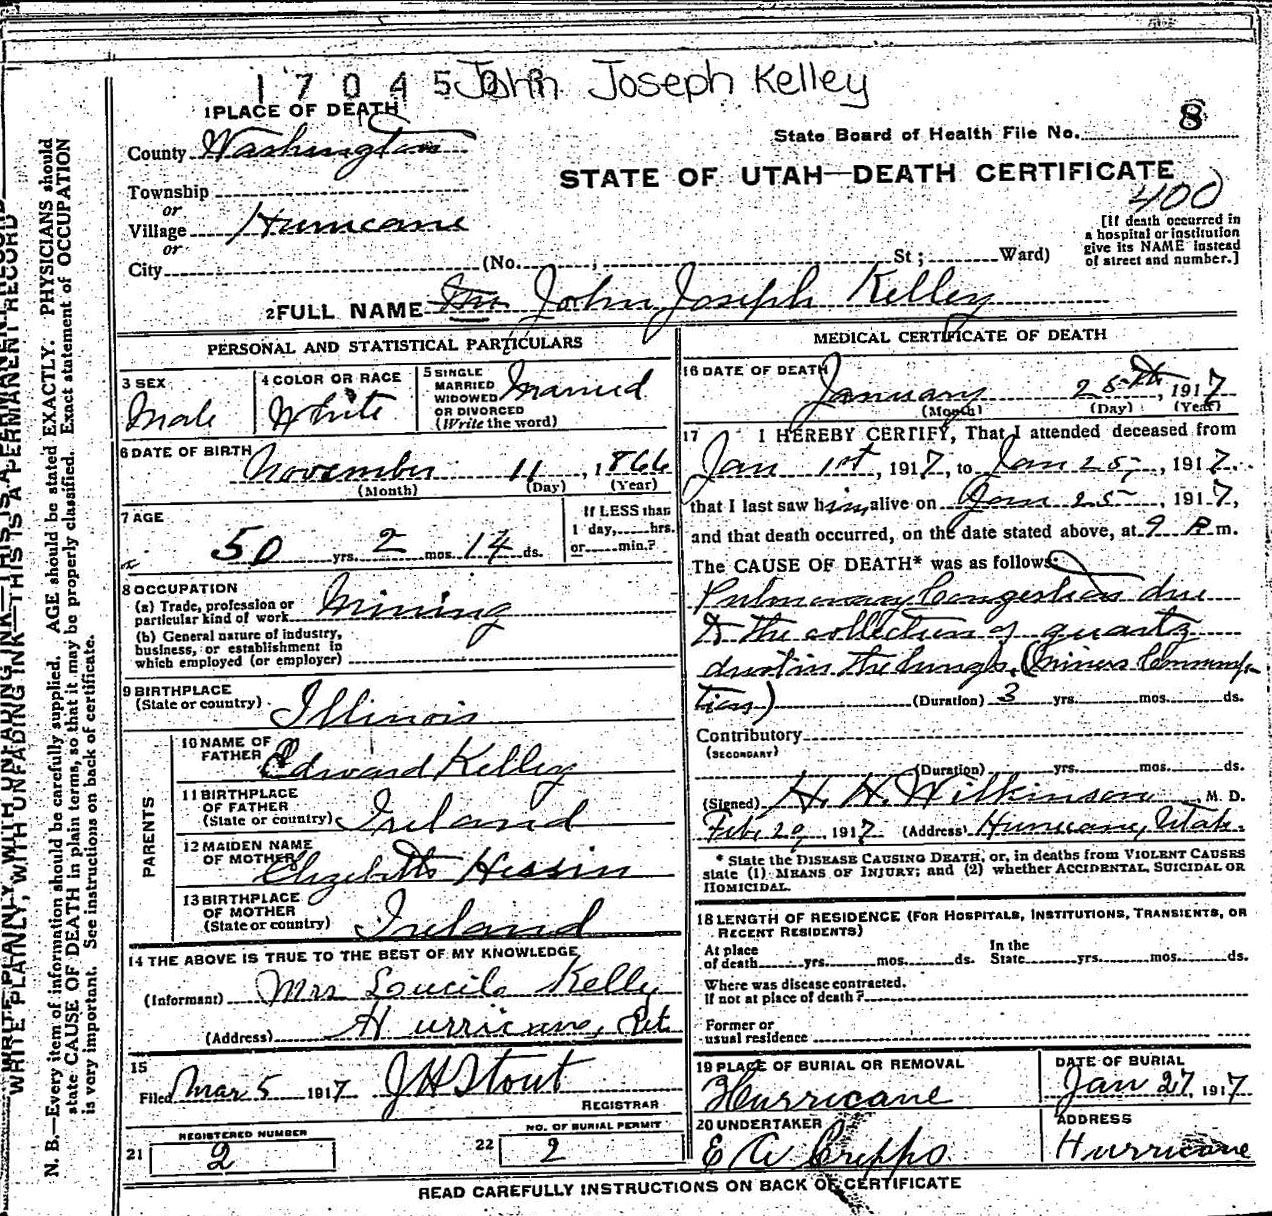 1704502 John Joseph Kelley
1 PLACE OF DEATH
State Board of Health File No. 8
County Washington
STATE OF UTAH—DEATH CERTIFICATE
400
Township
or
Village Hurricane
or
City (No. ; St ; Ward)
[If death occurred in
a hospital or institution
give its NAME instead
of street and number.]
2 FULL NAME John Joseph Kelley
PERSONAL AND STATISTICAL PARTICULARS
3 SEX
Male
4 COLOR OR RACE
White
5 SINGLE
MARRIED
WIDOWED
OR DIVORCED
(Write the word)
Married
6 DATE OF BIRTH
November 11, 1866
(Month) (Day) (Year)
7 AGE
50 yrs. 2 mos. 14 ds.
If LESS than
1 day, hrs.
or min.?
8 OCCUPATION
(a) Trade, profession or
particular kind of work Mining
(b) General nature of industry,
business, or establishment in
which employed (or employer)
9 BIRTHPLACE
(State or country) Illinois
PARENTS
10 NAME OF
FATHER Edward Kelley
11 BIRTHPLACE
OF FATHER
(State or country) Ireland
12 MAIDEN NAME
OF MOTHER Elizabeth Hessin
13 BIRTHPLACE
OF MOTHER
(State or country) Ireland
14 THE ABOVE IS TRUE TO THE BEST OF MY KNOWLEDGE
(Informant) Mrs Lucile Kelly
(Address) Hurricane, Ut.
15
Filed Mar 5 1917 J H Stout
REGISTRAR
REGISTERED NUMBER
21 2
NO. OF BURIAL PERMIT
22 2
MEDICAL CERTIFICATE OF DEATH
16 DATE OF DEATH
January 25th, 1917
(Month) (Day) (Year)
17 I HEREBY CERTIFY, That I attended deceased from
Jan 1st, 1917, to Jan 25, 1917.
that I last saw him alive on Jan 25, 1917,
and that death occurred, on the date stated above, at 9 P m.
The CAUSE OF DEATH* was as follows:
Pulmonary Congestion due
to the collection of quartz
dust in the lungs. (Miners Consump-
tion)
(Duration) 3 yrs. mos. ds.
Contributory
(SECONDARY)
(Duration) yrs. mos. ds.
(Signed) H. H. Wilkinson, M. D.
Feb. 29, 1917 (Address) Hurricane, Utah.
* State the DISEASE CAUSING DEATH, or, in deaths from VIOLENT CAUSES
state (1) MEANS OF INJURY; and (2) whether ACCIDENTAL, SUICIDAL OR
HOMICIDAL.
18 LENGTH OF RESIDENCE (FOR HOSPITALS, INSTITUTIONS, TRANSIENTS, OR
RECENT RESIDENTS)
At place
of death yrs. mos. ds.
In the
State yrs. mos. ds.
Where was disease contracted.
if not at place of death?
Former or
usual residence
19 PLACE OF BURIAL OR REMOVAL
Hurricane
DATE OF BURIAL
Jan 27, 1917
20 UNDERTAKER
E W Cripps
ADDRESS
Hurricane
READ CAREFULLY INSTRUCTIONS ON BACK OF CERTIFICATE
WRITE PLAINLY, WITH UNFADING INK—THIS IS A PERMANENT RECORD
N. B.—Every item of information should be carefully supplied. AGE should be stated EXACTLY. PHYSICIANS should
state CAUSE OF DEATH in plain terms, so that it may be properly classified. Exact statement of OCCUPATION
is very important. See instructions on back of certificate.